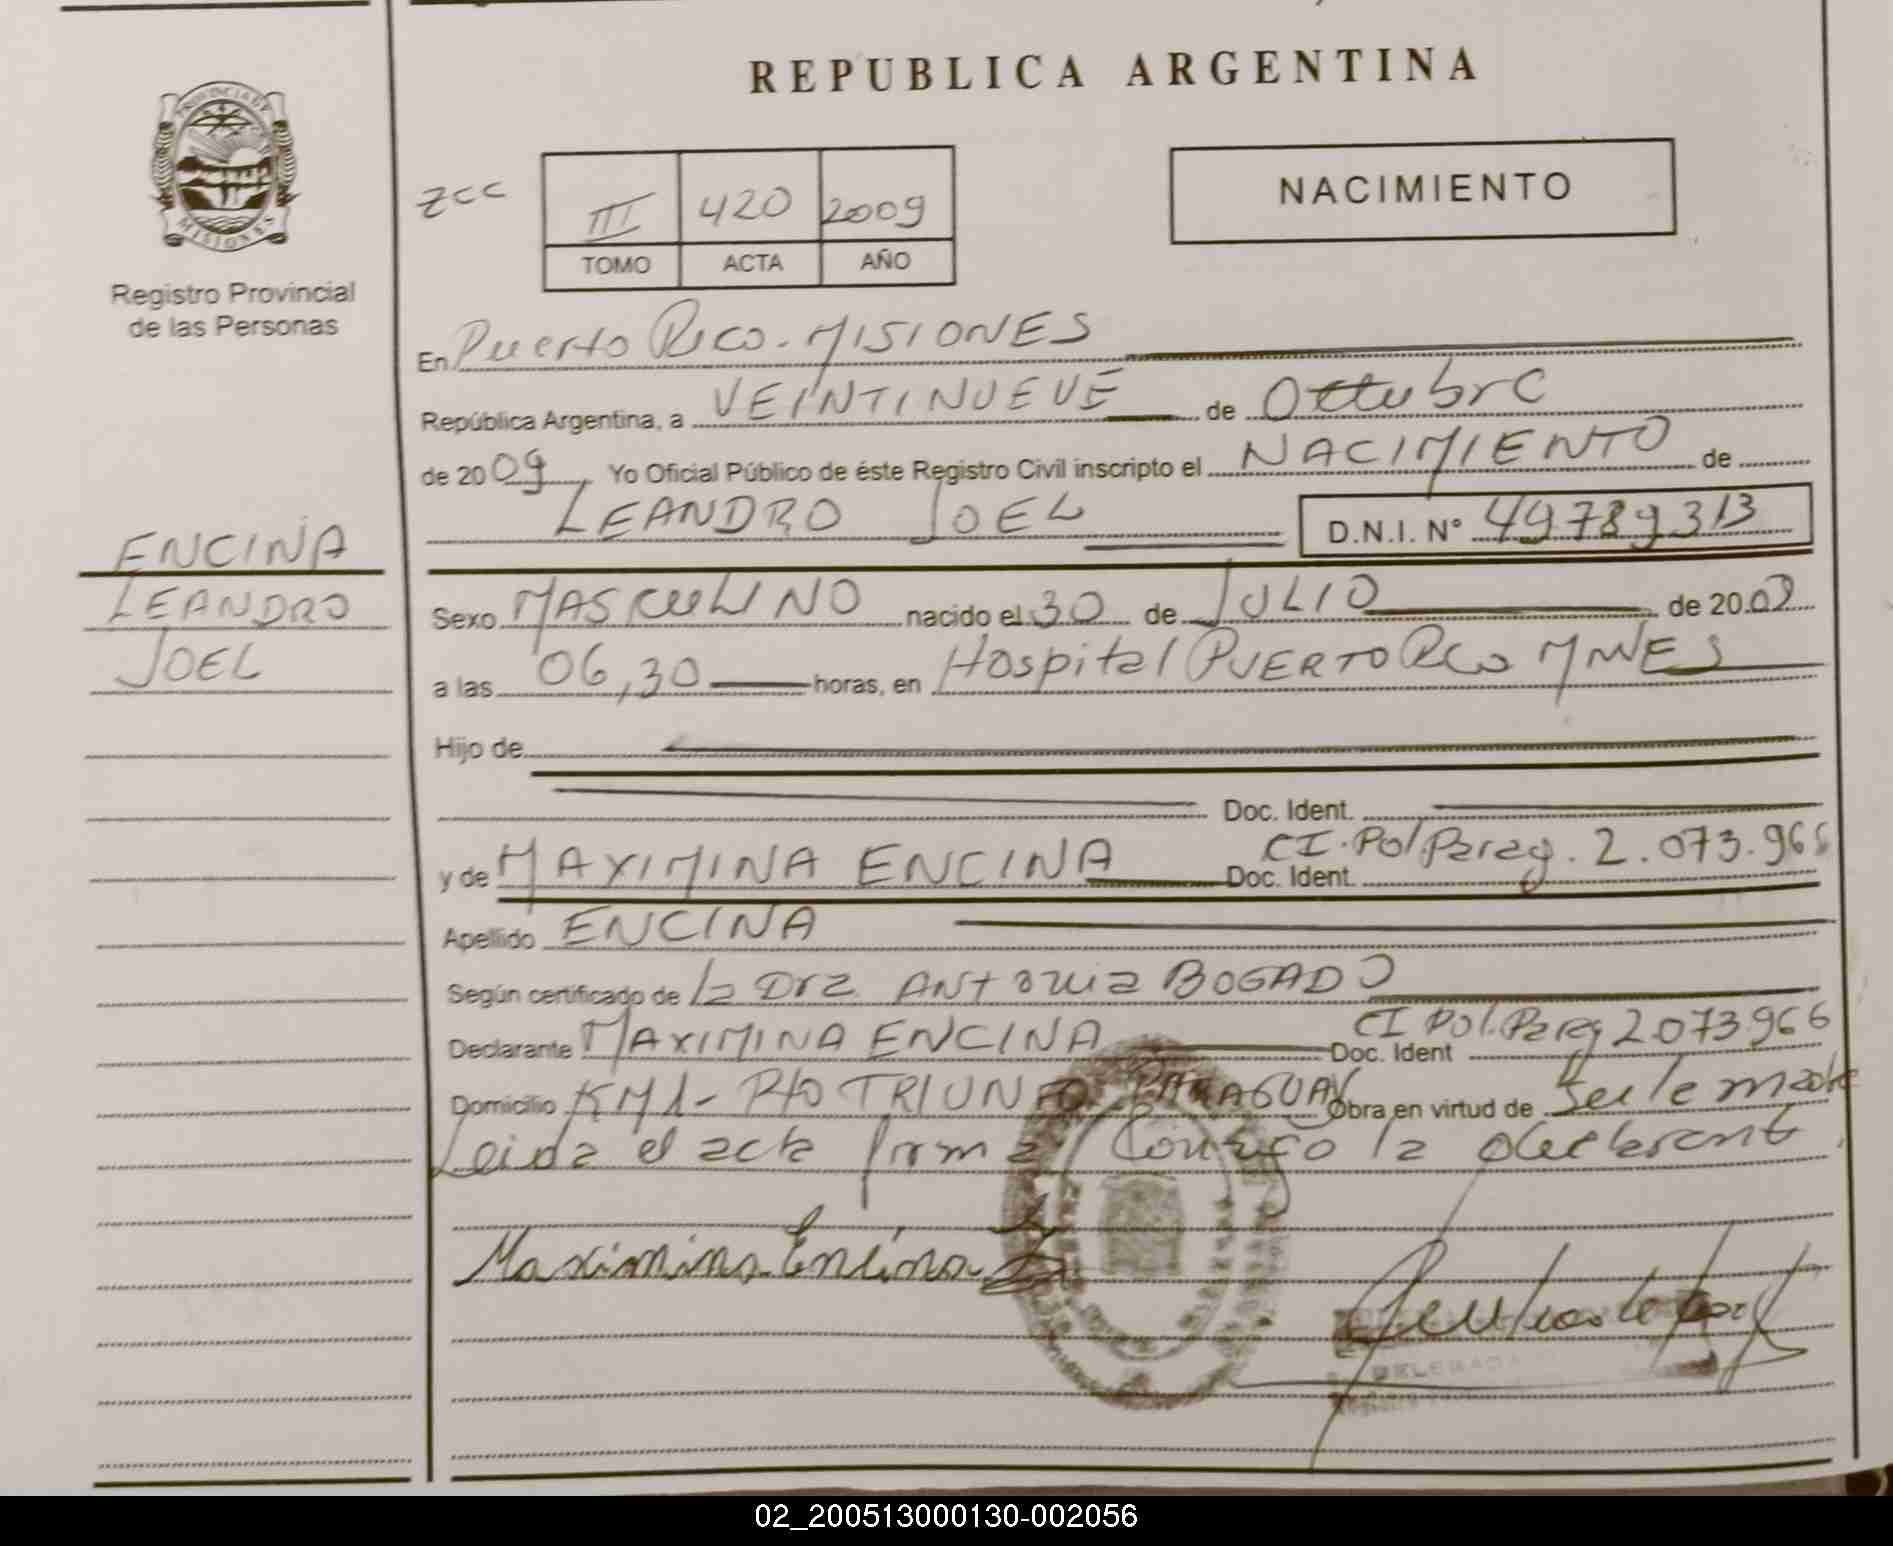 REPUBLICA ARGENTINA
PROVINCIA DE
MISIONES
Registro Provincial
de las Personas
zcc
III 420 2009
TOMO ACTA AÑO
NACIMIENTO
En Puerto Rico. MISIONES
República Argentina, a VEINTINUEVE de Octubre
de 2009 Yo Oficial Público de éste Registro Civil inscripto el NACIMIENTO de
LEANDRO JOEL D.N.I. N° 49789313
ENCINA
LEANDRO
JOEL
Sexo MASCULINO nacido el 30 de JULIO de 2009
a las 06,30 horas, en Hospital PUERTO RICO MNES
Hijo de
Doc. Ident.
y de MAXIMINA ENCINA Doc. Ident. CI. Pol Parag. 2.073.966
Apellido ENCINA
Según certificado de la Dra. ANTONIA BOGADO
Declarante MAXIMINA ENCINA Doc. Ident CI Pol. Parag 2.073.966
Domicilio KM 1 - Pto TRIUNFO - PARAGUAY Obra en virtud de Ser la madre
Leida el acta firma conmigo la declarante.
Maximina Encina
DELEGADA
02_200513000130-002056